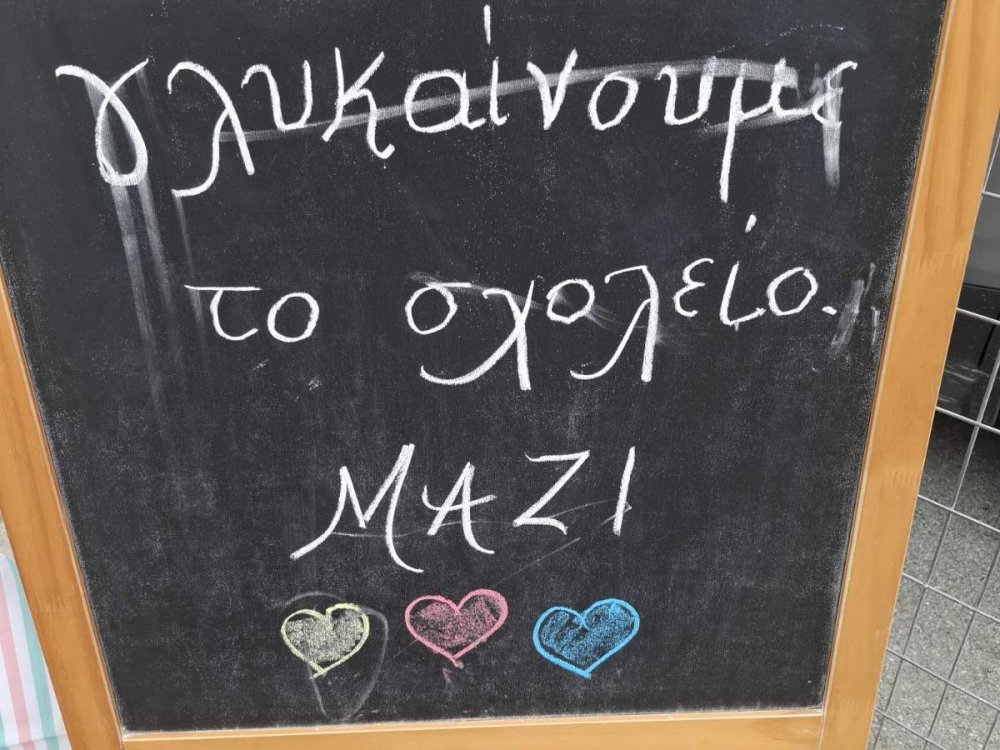 γλυκαίνουμε
το σχολείο.
ΜΑΖΙ